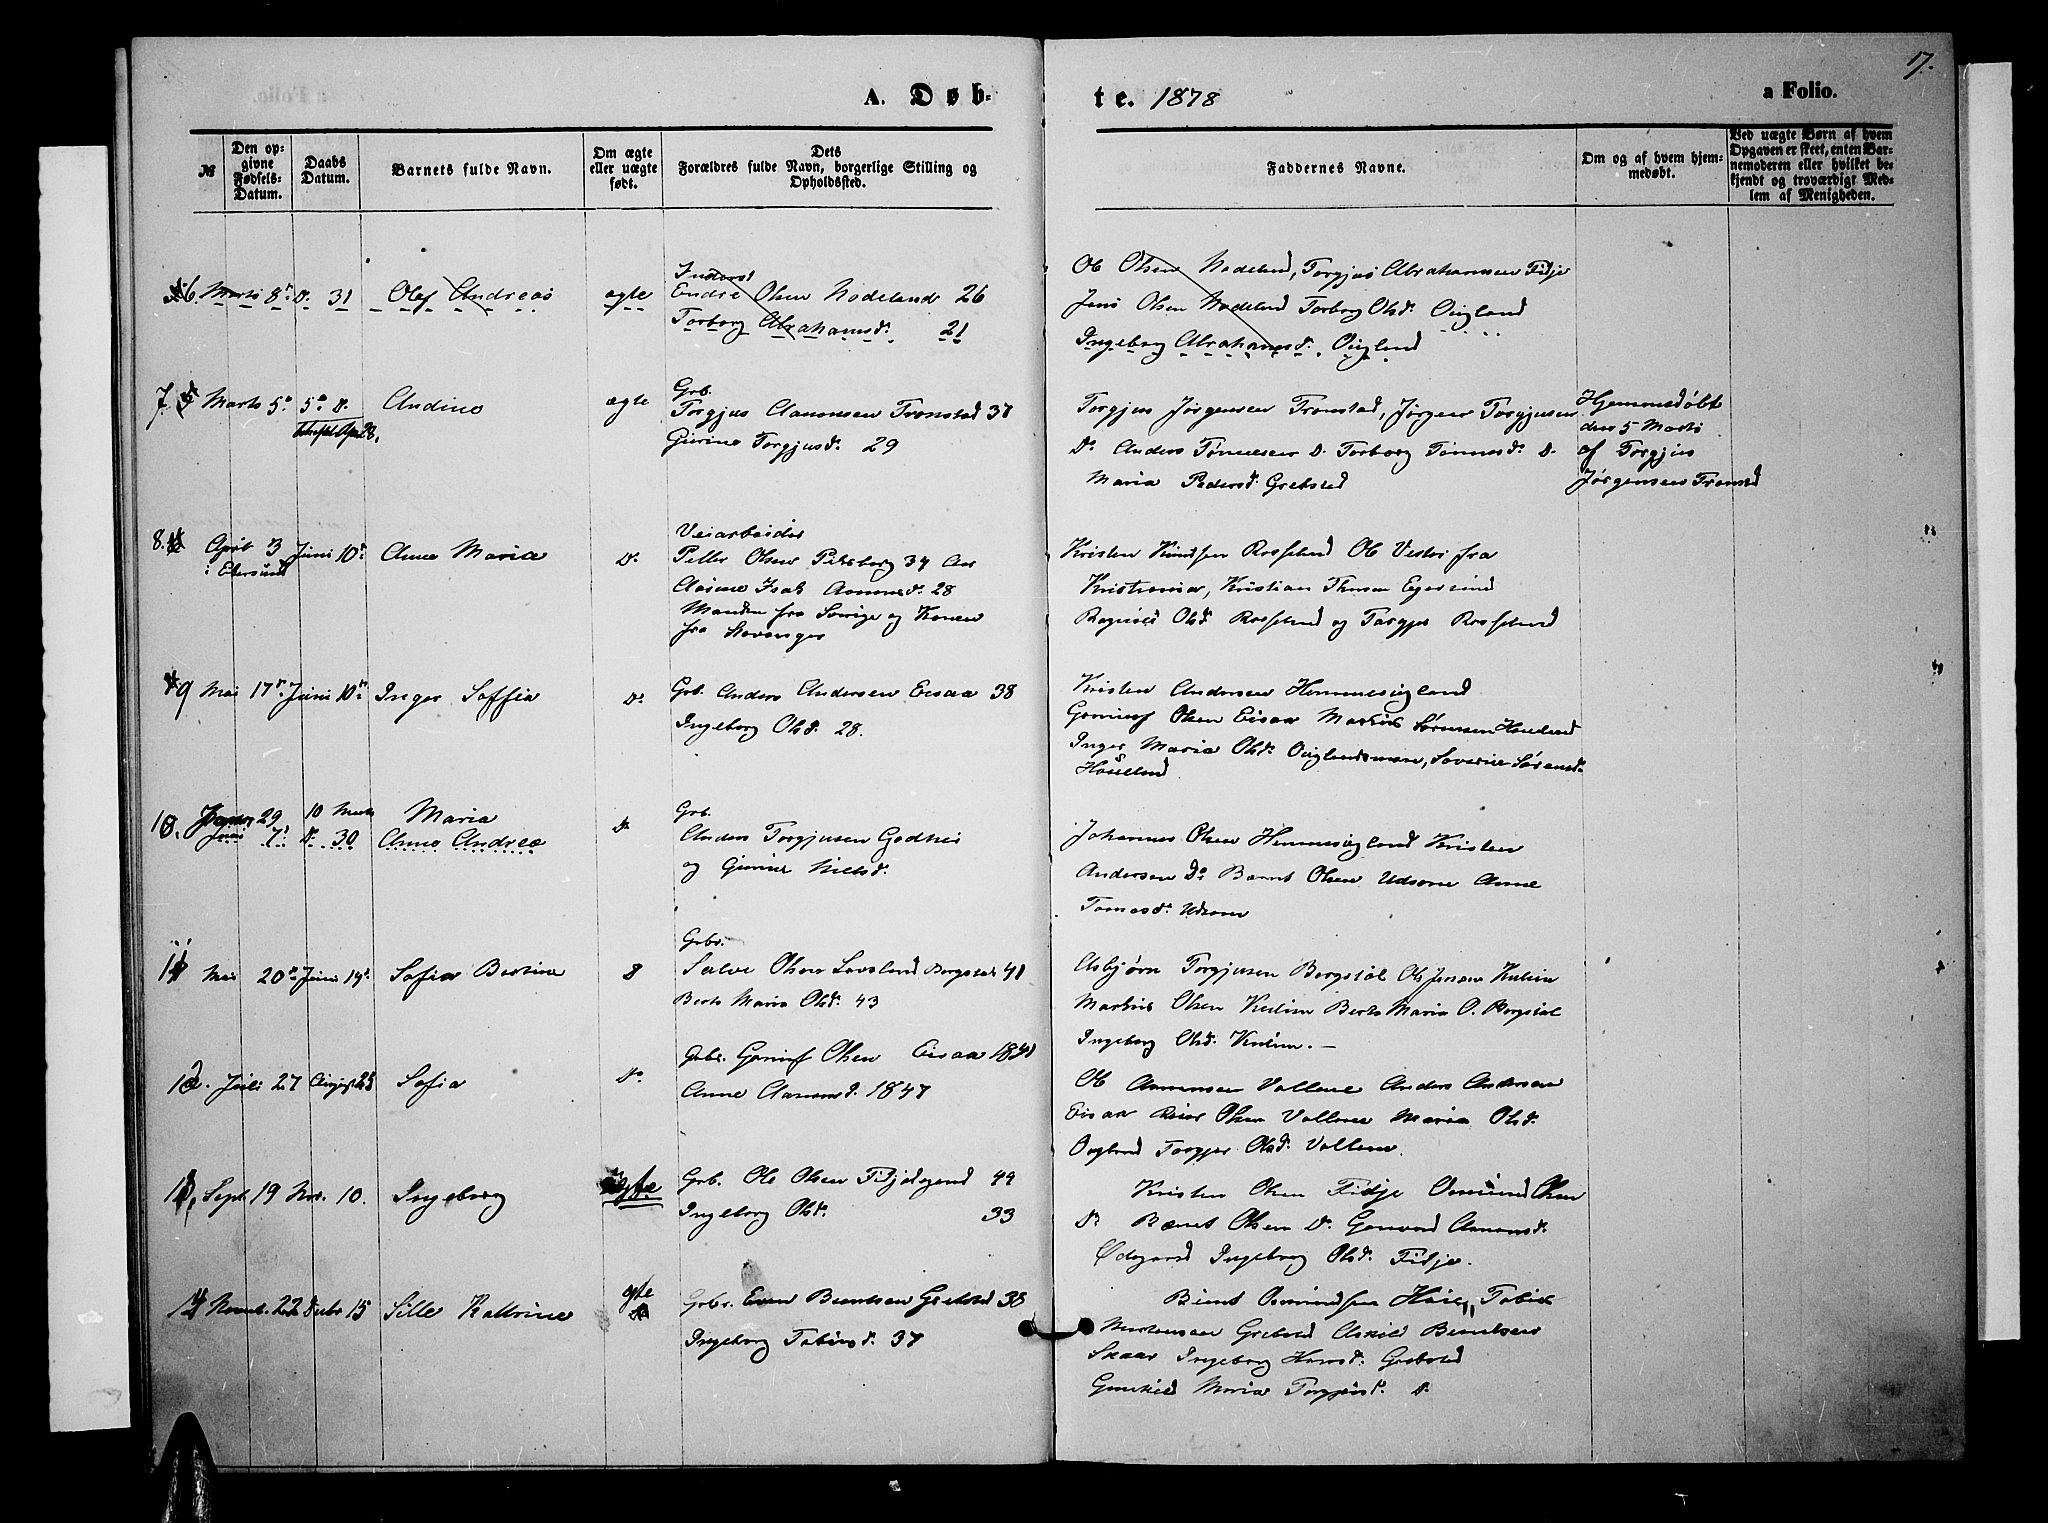 17.
A. Døb-
te. 1878
a Folio.
№
Den op-
givne
Fødsels-
Datum.
Daabs
Datum.
Barnets fulde Navn.
Om ægte
eller uægte
født.
Dets
Forældres fulde Navn, borgerlige Stilling og
Opholdssted.
Faddernes Navne.
Om og af hvem hjem-
medøbt.
Ved uægte Børn af hvem
Opgaven er skeet, enten Bar-
nemoderen eller hvilket be-
kjendt og troværdigt Med-
lem af Menigheden.
6. Marts 8d. D. 31 Olaf Andreas ægte
Inderst
Endre Olsen Nodeland 26
Torborg Abrahamsd. 21
Ole Olsen Nodeland, Torgjus Abrahamsen Fidje
Jens Olsen Nodeland Torborg Olsd. Øigland
Ingeborg Abrahamsd. Øigland
7. Marts 5. 5. D. Andine ægte
Grb.
Torgjus Aanonsen Tronstad 37
Gurine Torgjusd. 29
Torgjus Jørgensen Tronstad, Jørgen Torgjusen
Do Anders Tønnesen D. Torborg Tønnesd. D.
Maria Pedersd. Grebsted
Hjemmedøbt
den 5 Marts
af Torgjus
Jørgensen Tronstad
8. April 3 Juni 10d. Anne Maria D.
i Ekersund
Veiarbeider
Petter Olsen 34
28
Manden fra Sverige og Konen
fra Stavanger
Kristen Knudsen Rosseland Ole Vester fra
Kristiania, Kristian Thorsen Egersund
Olsd. Rosseland og Torgjer Rosseland
9 Mai 17d. Juni 10d. Inger Soffia Do
Grb. Anders Andersen Eisaa 38
Ingeborg Olsd. 28.
Kristen Andersen Hommesigland
Gunnuf Olsen Eisaa Markus Sørensen
Inger Maria Olsd. Severine Sørensd.
10. Januar 29 10 Marts Maria D.
Juni 7. D. 30 Anne Andrea
Grb.
Anders Torgjusen Godhei
og Gurine Nielsd.
Johannes Olsen Hommesigland Kristen
Andersen Do Bærnt Olsen Udsone Anne
Tomasd. Udsone
11 Mai 20d. Juni 19d. Sofia Bertine D
Grbr.
Salve Olsen Løvland Bergstøl 41
Berte Maria Olsd. 43
Asbjørn Torgjusen Bergstøl Ole Jensen
Markus Olsen Berte Maria O. Bergstøl
Ingeborg Olsd.
12. Juli 27 August 25 Sofia Do
Grbr. Gunnuf Olsen Eisaa 1841
Anne Aanonsd. 1847
Ole Aanonsen Vollene Anders Andersen
Eisaa Olsen Vollene Maria Olsd.
Øigland Torgjer Olsd. Vollene.
Sept. 19 Nov. 10. Ingeborg ægte
Grb. Ole Olsen Fidje 44
Ingeborg Olsd. 33
Kristen Olsen Fidje Omund Olsen
Do Bærnt Olsen D. Gunvor Aanonsd.
Ødegaard Ingeborg Olsd. Fidje.
14 Novemb. 22 Decbr 15 Sille Kathrine ægte
Grbr. Even Berntsen Grebsted 38
Ingeborg Tobiasd. 37
Bernt Omundsen Høie, Tobias
Mortensen Grebsted Askild Berntsen
Skaar Ingeborg Hansd. Grebsted
Gunhild Maria Torgjusd. D.